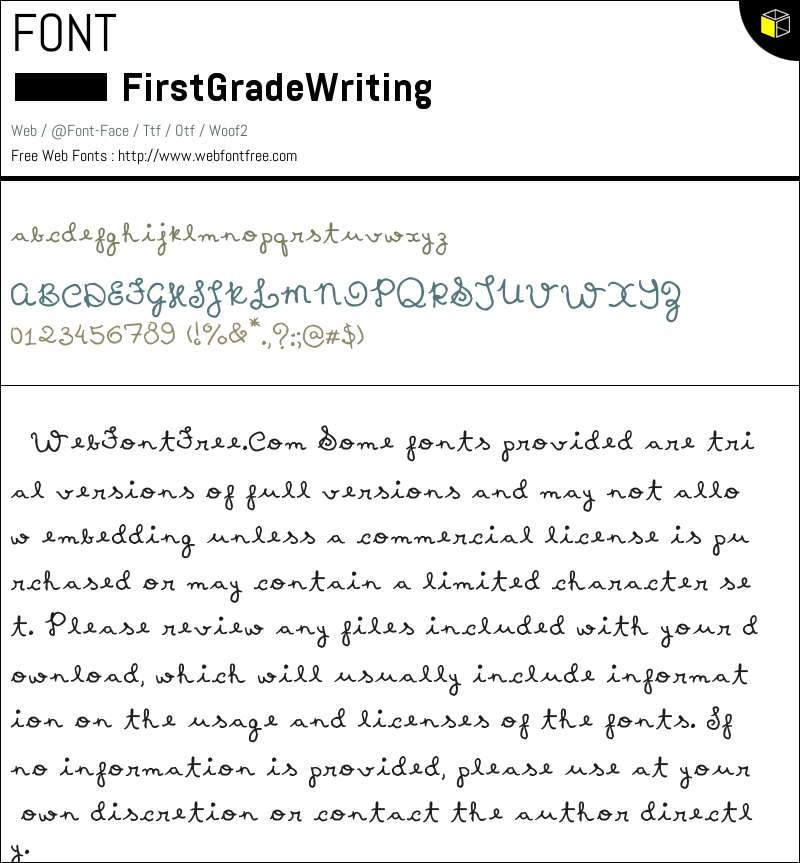 FONT
FirstGradeWriting
Web / @Font-Face / Ttf / Otf / Woof2
Free Web Fonts : http://www.webfontfree.com
abcdefghijklmnopqrstuvwxyz
ABCDEFGHIJKLMNOPQRSTUVWXYZ
0123456789 (!%&*.,?:;@#$)
WebFontFree.Com Some fonts provided are tri
al versions of full versions and may not allo
w embedding unless a commercial license is pu
rchased or may contain a limited character se
t. Please review any files included with your d
ownload, which will usually include informat
ion on the usage and licenses of the fonts. If
no information is provided, please use at your
own discretion or contact the author directl
y.